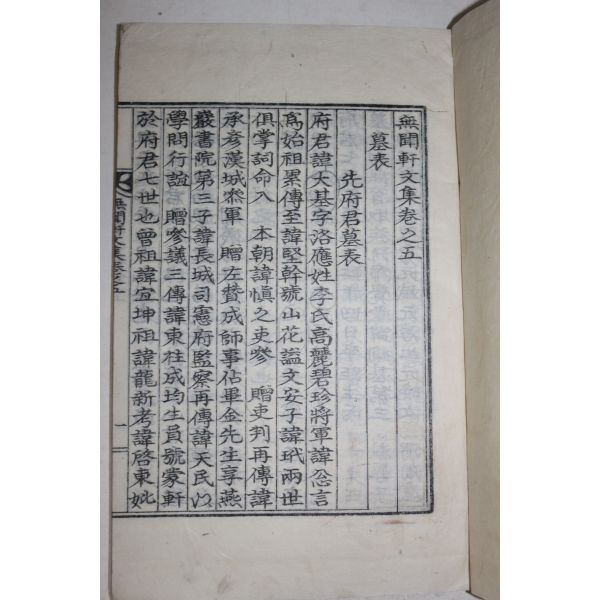 無聞軒文集卷之五
墓表
先府君墓表
府君諱大基字洛應姓李氏高麗碧珍將軍諱忩言
爲始祖累傳至諱堅幹號山花謚文安子諱玳兩世
俱掌詞命入 本朝諱愼之吏參 贈吏判再傳諱
承彦漢城參軍 贈左贊成師事佔畢金先生享燕
巖書院第三子諱長城司憲府監察再傳諱天民以
學問行誼 贈參議三傳諱東柱成均生員號蒙軒
於府君七世也曾祖諱宜坤祖諱龍新考諱啓東妣
無聞軒文集卷之五
一